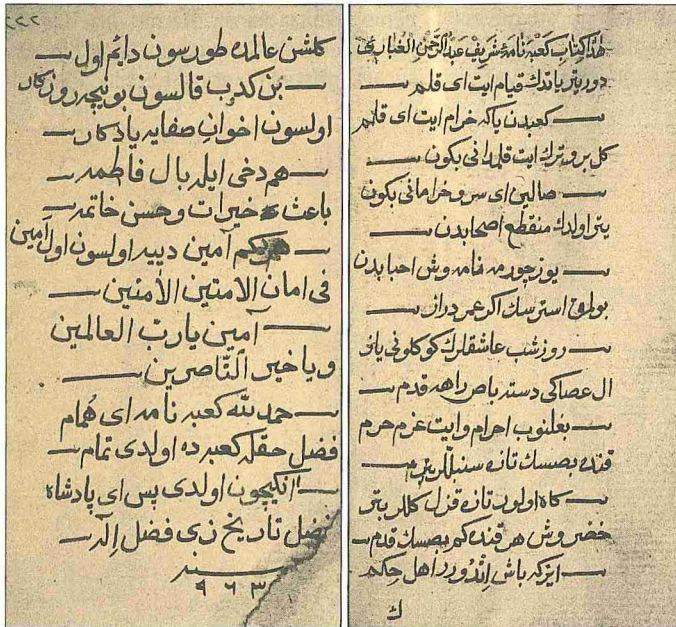 هذا كتاب كعبه نامهٔ شريف عبد الرحمن الغبارى
دور يتر ياتدك قيام ايت اى قلم
كعبدن ياكه خرام ايت اى قلم
كل برو ترك ايت قلمدانى بكون
صالين اى سرو خرامانى بكون
يتر اولدك منقطع اصحابدن
يوز چورمه نامه وش احبابدن
بو طريق استرسك اكر عمر دراز
روز شب عاشقلرك كوكلونى ياز
ال عصاكى دسته باص راهه قدم
بغلنوب احرام وايت عزم حرم
قنده بصسك تازه سنبللر بتر
كاه اولور تازه قزل كللر بتر
خضر وش هر قنده كم بصسك قدم
ايزكه باش اندورر اهل حكم
ك
٢٢٢
كلشن عالمده طورسون دايم اول
بن كدب قالسون بو نيچه روزكار
اولسون اخوان صفايه يادكار
هم دخى ايله بال فاطمه
باعث خيرات وحسن خاتمه
هركم آمين دييه اولسون اول آمين
فى امان الامتين الأمنين
آمين يا رب العالمين
ويا خير الناصرين
حمد لله كعبه نامه اى همام
فضل حقله كعبه ده اولدى تمام
انكيچون اولدى بس اى پادشاه
فضل تاريخ ذى فضل اله
سنه
٩٦٣